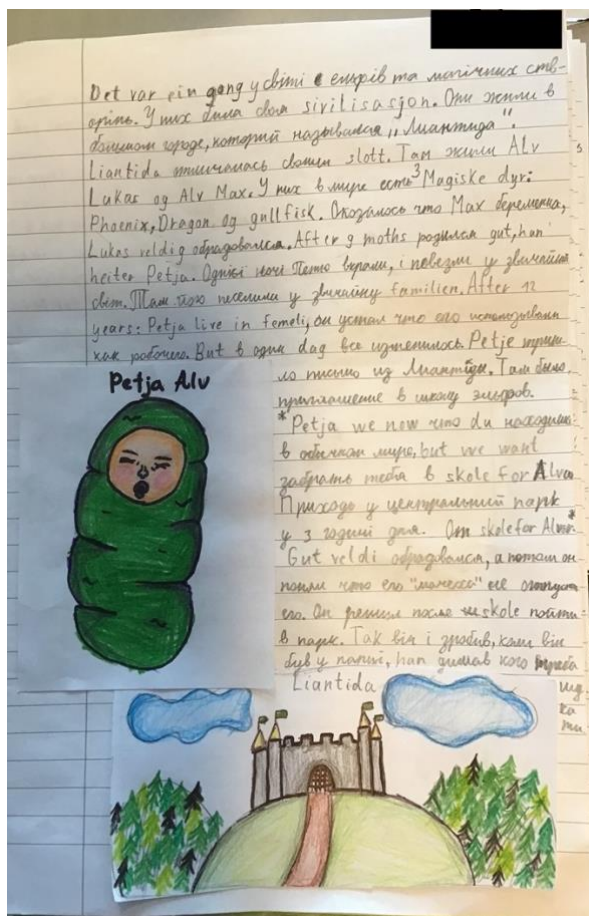 Det var ein gong у світі ельфів та магічних ств-
орінь. У них била своя sivilisasjon. Они жили в
большом городе, который назывался „Лиантида".
Liantida отличалась своим slott. Там жили Alv
Lukas og Alv Max. У них в мире есть 3 Magiske dyr:
Phoenix, Dragon og gullfisk. Оказалось что Max беременна,
Lukas veldig обрадовался. After 9 moths родился gut, han
heiter Petja. Однієї ночі Петю вкрали, і повезли у звичайний
світ. Там його поселили у звичайну familien. After 12
years: Petja live in femeli, он устал что его использывали
как рабочего. But в один dag все изменилось. Petje пришло
ло письмо из Лиантіды. Там было
приглашение в школу эльфов.
*Petja we now что du находишь
в обычном мире, but we want
забрать тебя в skole for Alvar
Приходь у центральний парк
у 3 годині дня. От skole for Alvar*
Gut veldi обрадовался, а потом он
понял что его "мачеха" не отпустит
его. Он решил после skole пойти
в парк. Так він і зробив, коли він
був у парці, han думав кого треба
шу
ка
ти.
Petja Alv
Liantida